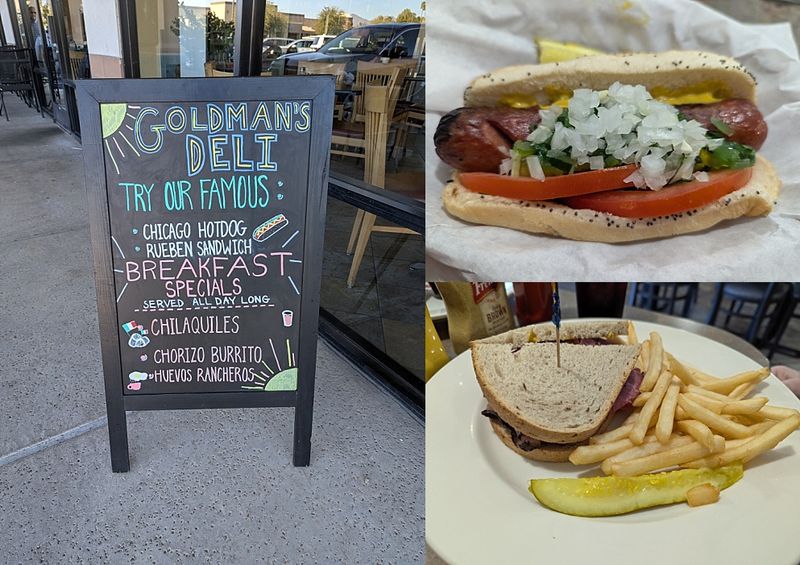 GOLDMAN'S
DELI
TRY OUR FAMOUS
CHICAGO HOTDOG
RUEBEN SANDWICH
BREAKFAST
SPECIALS
SERVED ALL DAY LONG
CHILAQUILES
CHORIZO BURRITO
HUEVOS RANCHEROS
BROWN